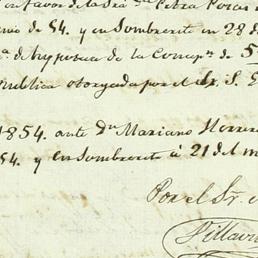 en favor de la Sra Da Petra Rosas
nio de 54. y en Sombrerete en 28 de
a de hypoteca de la Concepn de 5
publica otorgada por el Sr. S. G
1854. ante Dn Mariano Herrer
54. y en Sombrerete á 21 del m
Por el Sr.
Villavi